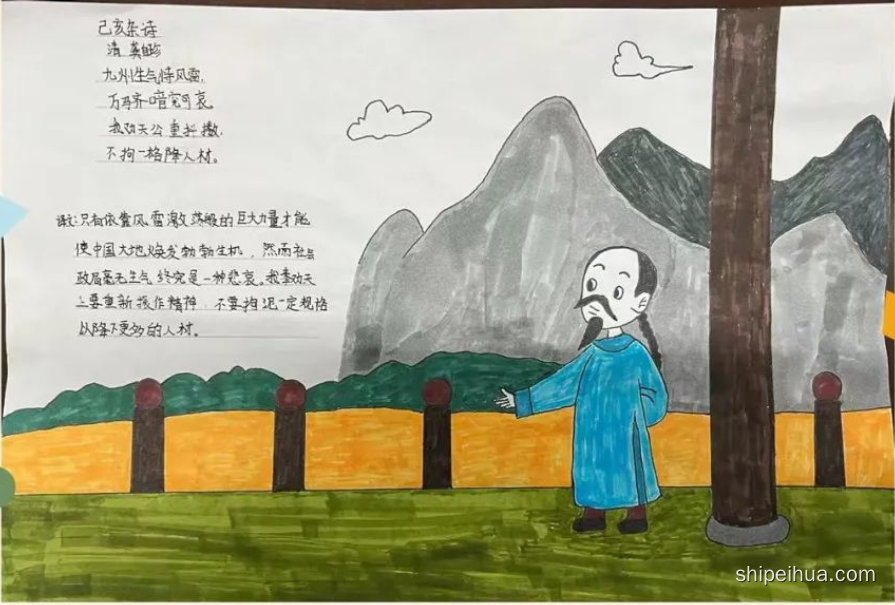 己亥杂诗
清 龚自珍
九州生气恃风雷,
万马齐喑究可哀
我劝天公重抖擞,
不拘一格降人材。
译:只有依靠风雷激荡般的巨大力量才能
使中国大地焕发勃勃生机,然而社会
政局毫无生气终究是一种悲哀。我奉劝天
上要重新振作精神,不要拘泥一定规格
以降下更多的人材。
shipeihua.com